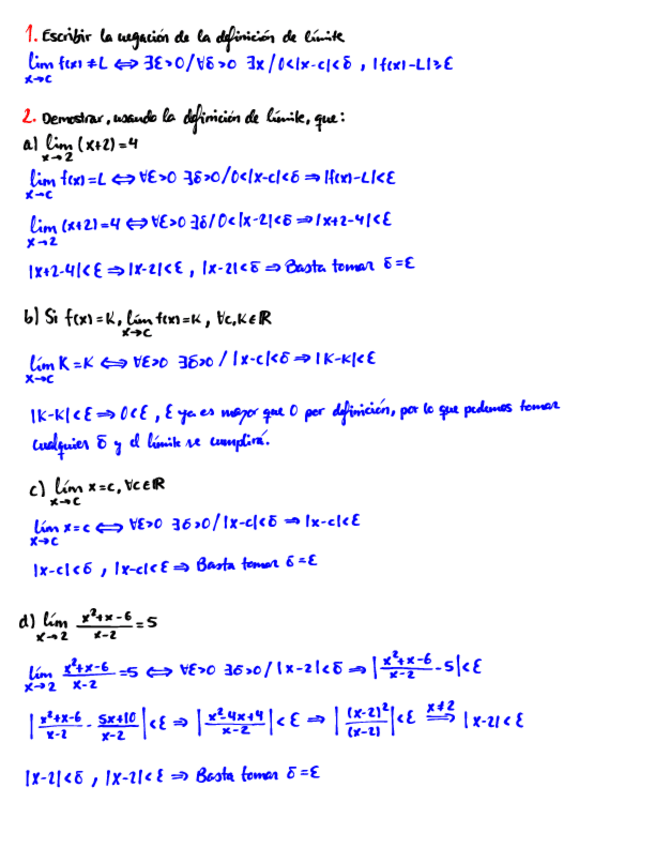 1. Escribir la negación de la definición de límite
lim f(x) ≠ L ⟺ ∃ε>0 / ∀δ>0 ∃x / 0<|x-c|<δ , |f(x)-L|≥ε
x→c
2. Demostrar, usando la definición de límite, que:
a) lim (x+2)=4
x→2
lim f(x)=L ⟺ ∀ε>0 ∃δ>0 / 0<|x-c|<δ ⇒ |f(x)-L|<ε
x→c
lim (x+2)=4 ⟺ ∀ε>0 ∃δ / 0<|x-2|<δ ⇒ |x+2-4|<ε
x→2
|x+2-4|<ε ⇒ |x-2|<ε , |x-2|<δ ⇒ Basta tomar δ=ε
b) Si f(x)=K, lim f(x)=K , ∀c,K∈ℝ
x→c
lím K=K ⟺ ∀ε>0 ∃δ>0 / |x-c|<δ ⇒ |K-K|<ε
x→c
|K-K|<ε ⇒ 0<ε , ε ya es mayor que 0 por definición, por lo que podemos tomar
cualquier δ y el límite se cumplirá.
c) lím x=c, ∀c∈ℝ
x→c
lím x=c ⟺ ∀ε>0 ∃δ>0 / |x-c|<δ ⇒ |x-c|<ε
x→c
|x-c|<δ , |x-c|<ε ⇒ Basta tomar δ=ε
d) lím x²+x-6/x-2 = 5
x→2
lím x²+x-6/x-2 =5 ⟺ ∀ε>0 ∃δ>0 / |x-2|<δ ⇒ |x²+x-6/x-2 -5|<ε
x→2
|x²+x-6/x-2 - 5x+10/x-2|<ε ⇒ |x²-4x+4/x-2|<ε ⇒ |(x-2)²/(x-2)|<ε x≠2 ⟹ |x-2|<ε
|x-2|<δ , |x-2|<ε ⇒ Basta tomar δ=ε